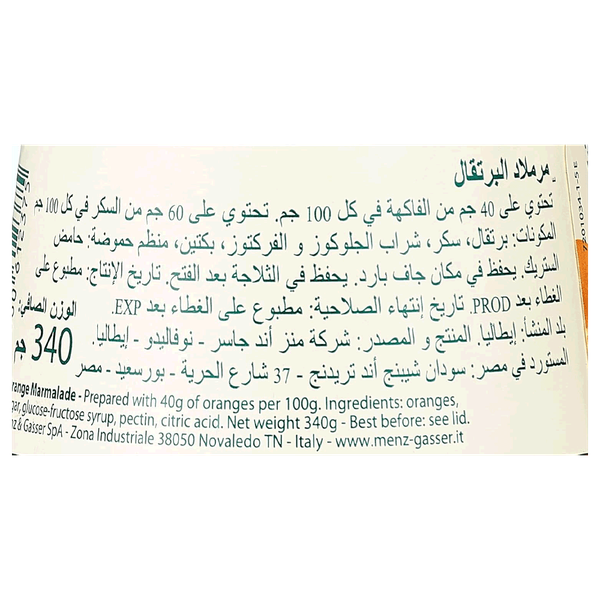 مرملاد البرتقال
تحتوي على 40 جم من الفاكهة في كل 100 جم. تحتوي على 60 جم من السكر في كل 100 جم
المكونات: برتقال، سكر، شراب الجلوكوز و الفركتوز، بكتين، منظم حموضة: حامض
الستريك. يحفظ في مكان جاف بارد. يحفظ في الثلاجة بعد الفتح. تاريخ الإنتاج: مطبوع على
الغطاء بعد PROD. تاريخ إنتهاء الصلاحية: مطبوع على الغطاء بعد EXP.
بلد المنشا: إيطاليا. المنتج و المصدر: شركة منز أند جاسر - نوفاليدو - إيطاليا.
المستورد في مصر: سودان شيبنج أند تريدنج - 37 شارع الحرية - بورسعيد - مصر
الوزن الصافي:
340 جم
range Marmalade - Prepared with 40g of oranges per 100g. Ingredients: oranges,
gar, glucose-fructose syrup, pectin, citric acid. Net weight 340g - Best before: see lid.
nz & Gasser SpA - Zona Industriale 38050 Novaledo TN - Italy - www.menz-gasser.it